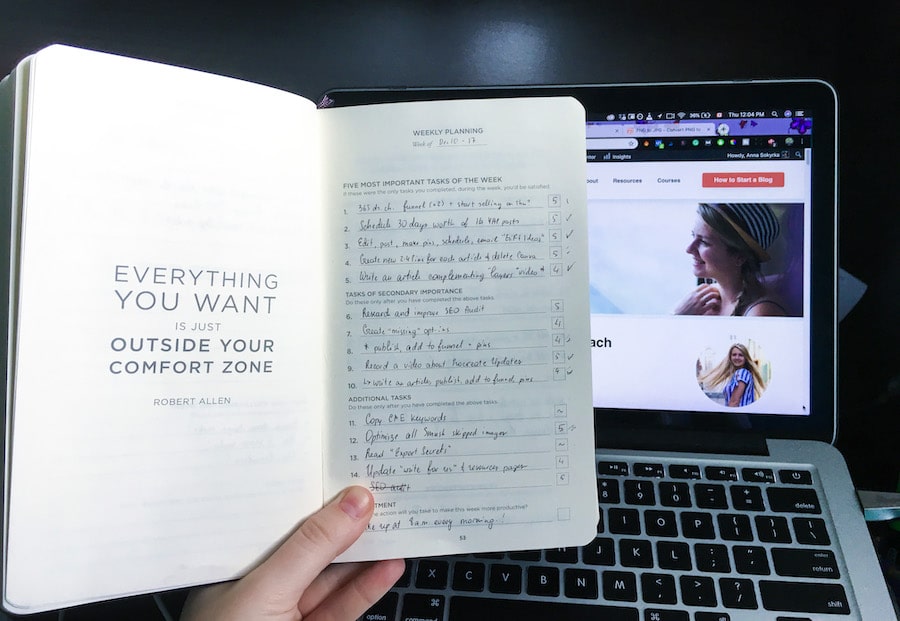 EVERYTHING
YOU WANT
IS JUST
OUTSIDE YOUR
COMFORT ZONE
ROBERT ALLEN
WEEKLY PLANNING
Week of Dec 10 - 17
FIVE MOST IMPORTANT TASKS OF THE WEEK
If these were the only tasks you completed, during the week, you'd be satisfied.
1. ch. funnel (x2) + start selling on 5
2. Schedule 30 days worth of posts 5
3. Edit, post, make pins, schedule, email "Gift Ideas" 5
4. Create new 2-4 pins for each article & delete Canva 5
5. Write an article complementing "layers" video 4
TASKS OF SECONDARY IMPORTANCE
Do these only after you have completed the above tasks.
6. Research and improve SEO Audit 5
7. Create "missing" opt-ins 4
8. + publish, add to funnel + pins 4
9. Record a video about Procreate Updates 5
10. ↳ write an article, publish, add to funnel, pins
ADDITIONAL TASKS
Do these only after you have completed the above tasks.
11. Copy keywords ~
12. Optimize all Smush skipped images 5
13. Read "Expert Secrets" ~
14. Update "write for us" & resources pages 4
SEO Audit 5
TMENT
action will you take to make this week more productive?
up at 8am every morning!
53
36%
Thu 12:04 PM
Insights
Howdy, Anna Sokycka
out
Resources
Courses
How to Start a Blog
ach
delete
return
shift
option
command
8
9
0
U
I
O
P
J
K
L
X
C
V
B
N
M